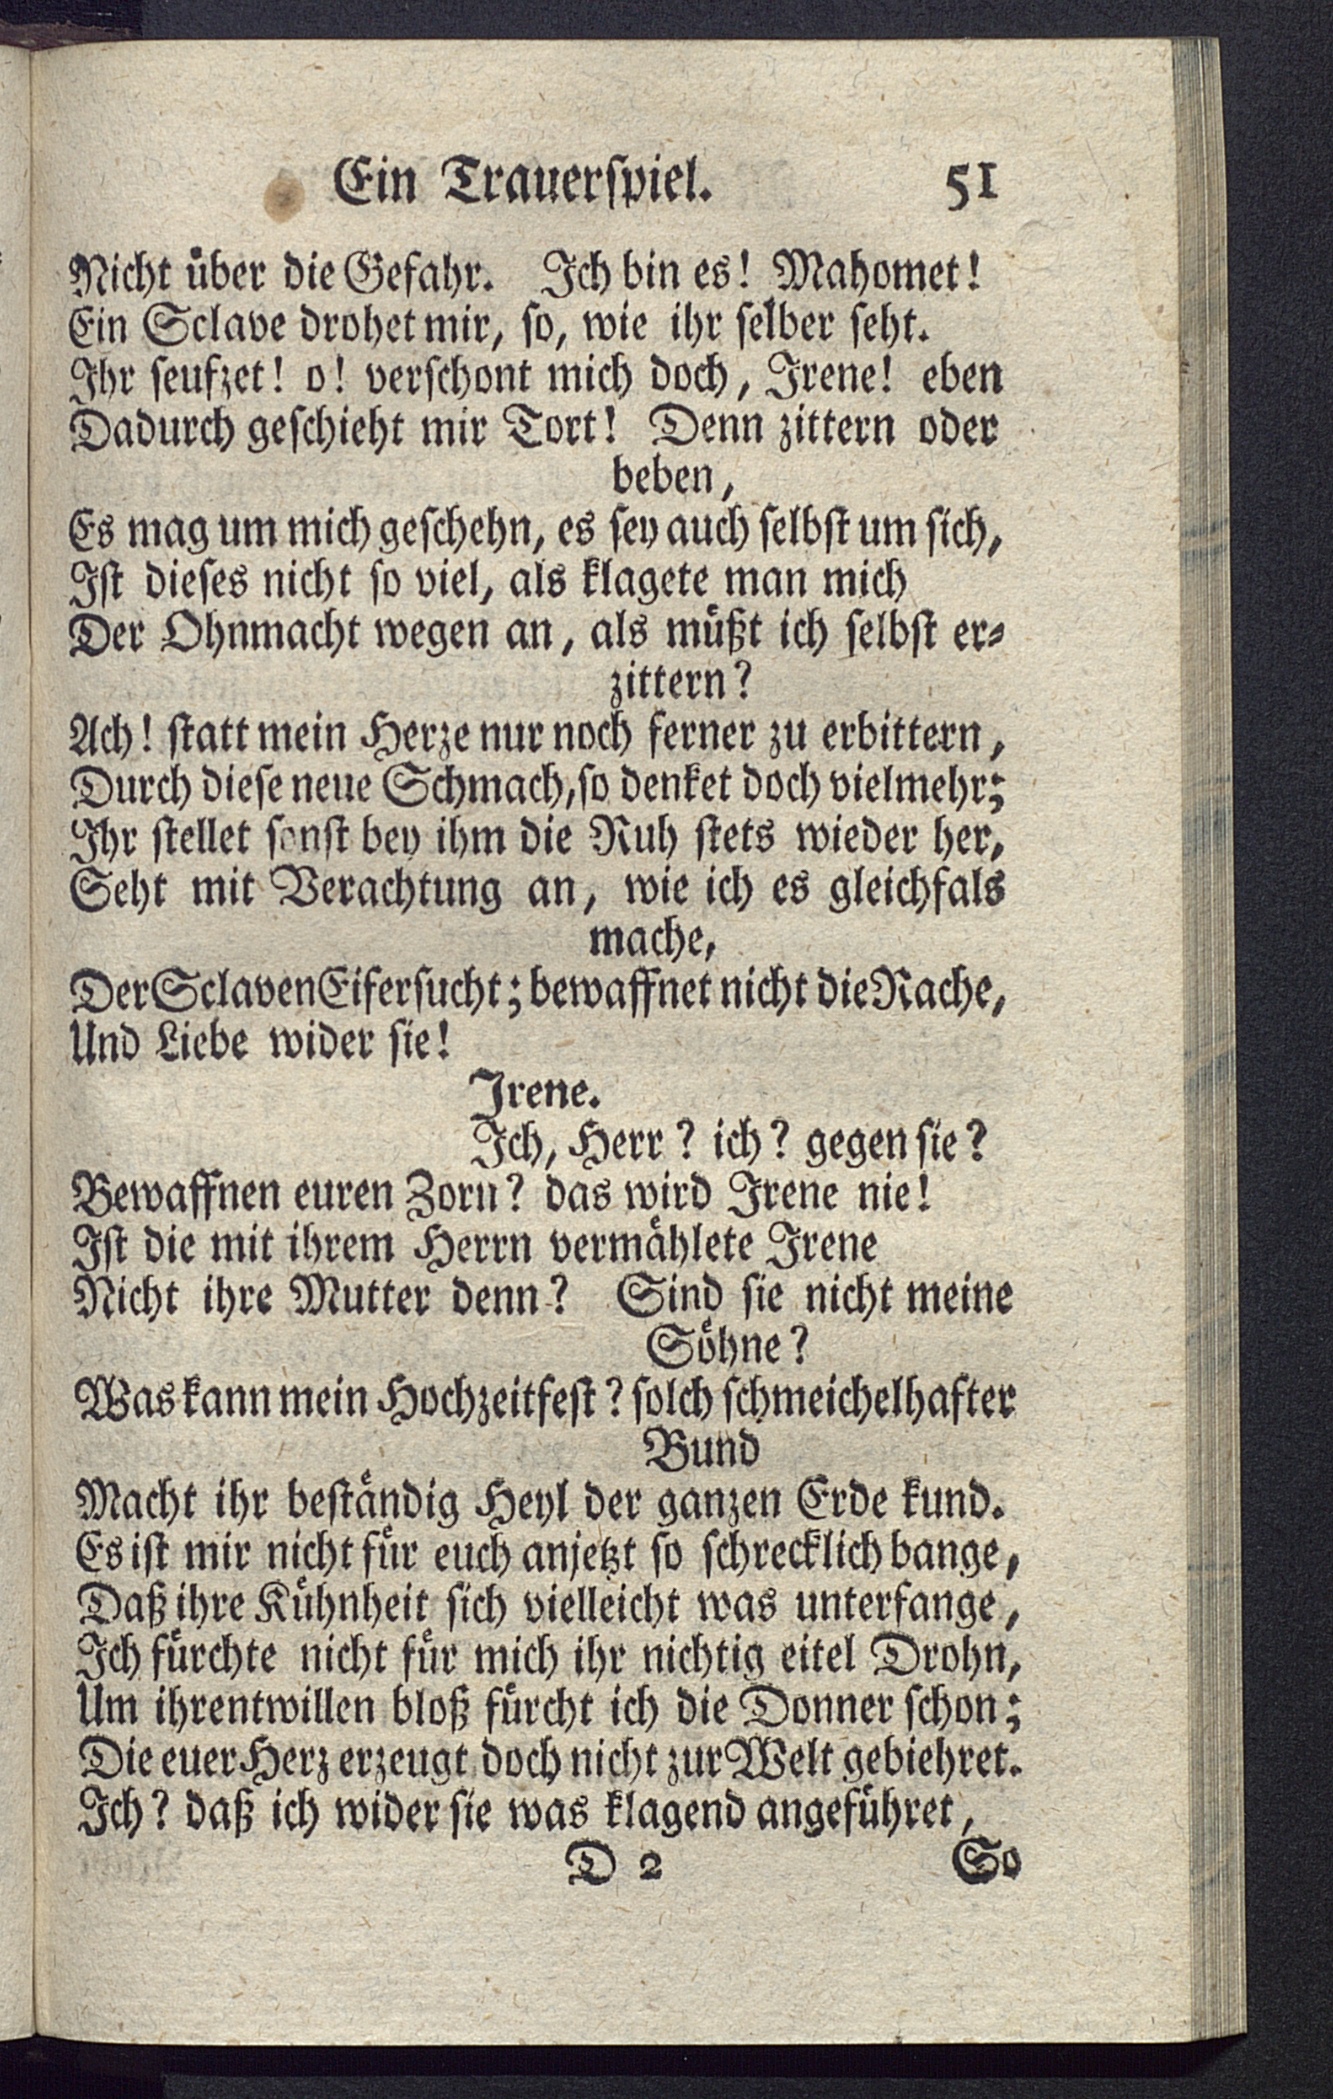 Ein Trauerſpiel. 51
Nicht über die Gefahr. Ich bin es! Mahomet!
Ein Sclave drohet mir, ſo, wie ihr ſelber ſeht.
Ihr ſeufzet! o! verſchont mich doch, Irene! eben
Dadurch geſchieht mir Tort! Denn zittern oder
beben,
Es mag um mich geſchehn, es ſey auch ſelbſt um ſich,
Iſt dieſes nicht ſo viel, als klagete man mich
Der Ohnmacht wegen an, als müßt ich ſelbſt er⸗
zittern?
Ach! ſtatt mein Herze nur noch ferner zu erbittern,
Durch dieſe neue Schmach, ſo denket doch vielmehr;
Ihr ſtellet ſonſt bey ihm die Ruh ſtets wieder her,
Seht mit Verachtung an, wie ich es gleichfals
mache,
Der Sclaven Eiferſucht; bewaffnet nicht die Rache,
Und Liebe wider ſie!
Irene.
Ich, Herr? ich? gegen ſie?
Bewaffnen euren Zorn? das wird Irene nie!
Iſt die mit ihrem Herrn vermählete Irene
Nicht ihre Mutter denn? Sind ſie nicht meine
Söhne?
Was kann mein Hochzeitfeſt? ſolch ſchmeichelhafter
Bund
Macht ihr beſtändig Heyl der ganzen Erde kund.
Es iſt mir nicht für euch anjetzt ſo ſchrecklich bange,
Daß ihre Kühnheit ſich vielleicht was unterfange,
Ich fürchte nicht für mich ihr nichtig eitel Drohn,
Um ihrentwillen bloß fürcht ich die Donner ſchon;
Die euer Herz erzeugt doch nicht zur Welt gebiehret.
Ich? daß ich wider ſie was klagend angeführet,
D 2 So